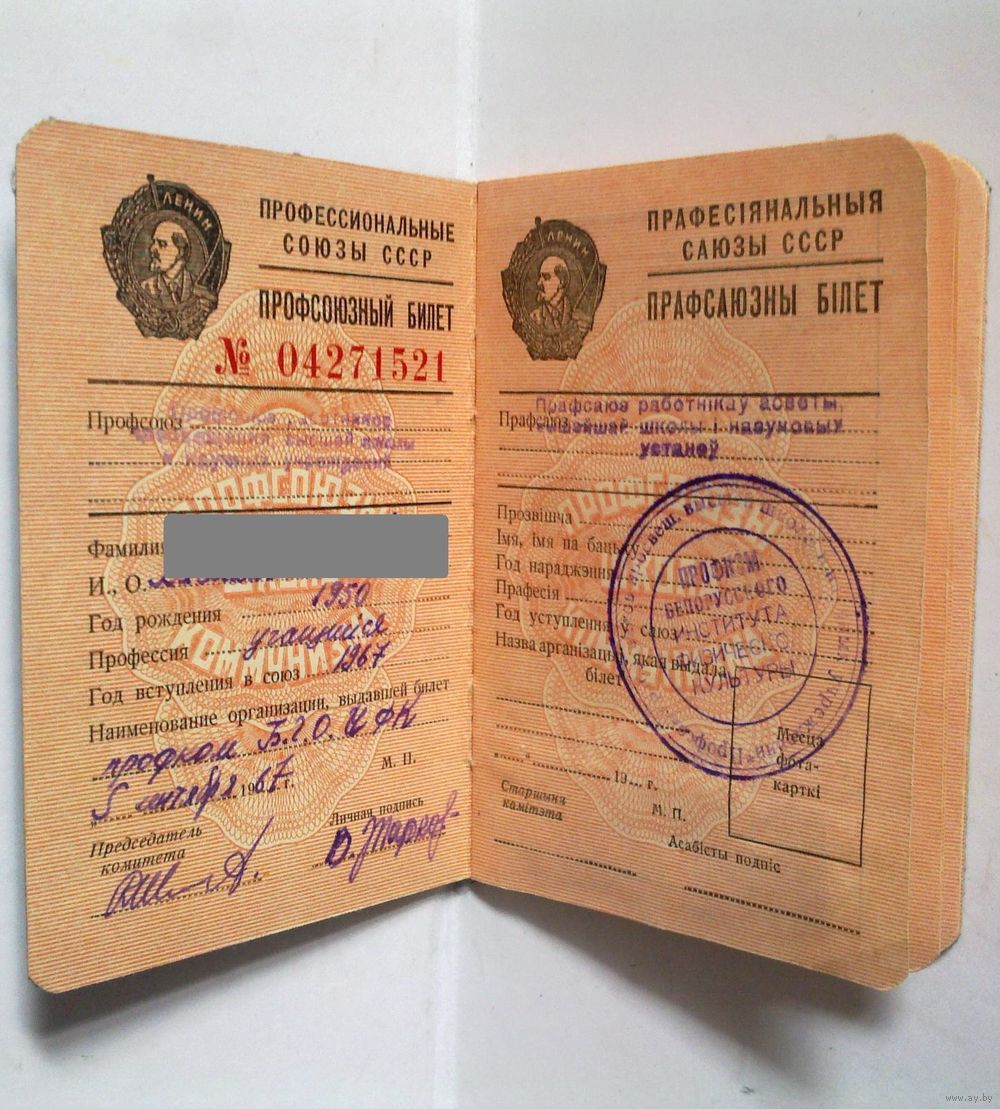 ЛЕНИН
ПРОФЕССИОНАЛЬНЫЕ
СОЮЗЫ СССР
ПРОФСОЮЗНЫЙ БИЛЕТ
№ 04271521
Профсоюз
высшей школы
и научных учреждений
Фамилия
И., О.
Год рождения 1950
Профессия учащийся
Год вступления в союз 1967
Наименование организации, выдавшей билет
профком Б.Г.О.И.Ф.К
„5 сентября 1967 г.
М. П.
Председатель
комитета
Личная подпись
ЛЕНИН
ПРАФЕСІЯНАЛЬНЫЯ
САЮЗЫ СССР
ПРАФСАЮЗНЫ БІЛЕТ
Прафсаюз Прафсаюз работнікаў асветы,
вышэйшай школы і навуковых
устаноў
Прозвішча
Імя, імя па бацьку
Год нараджэння
Прафесія
Год уступлення ў саюз
Назва арганізацыі, якая выдала
білет
ПРОФКОМ
БЕЛОРУССКОГО
ИНСТИТУТА
ФИЗИЧЕСКОЙ
КУЛЬТУРЫ
Месца
фота-
карткі
„ “ 19 г.
М. П.
Старшыня
камітэта
Асабісты подпіс
www.ay.by